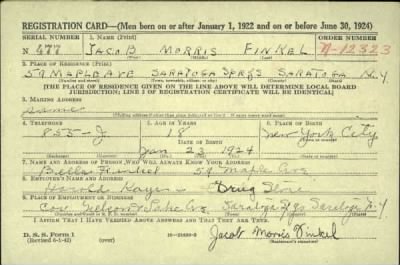 REGISTRATION CARD—(Men born on or after January 1, 1922 and on or before June 30, 1924)
SERIAL NUMBER 1. NAME (Print) ORDER NUMBER
N 477 JACOB MORRIS FINKEL N-12323
2. PLACE OF RESIDENCE (Print)
59 MAPLE AVE SARATOGA SPRGS SARATOGA N.Y.
[THE PLACE OF RESIDENCE GIVEN ON THE LINE ABOVE WILL DETERMINE LOCAL BOARD
JURISDICTION; LINE 2 OF REGISTRATION CERTIFICATE WILL BE IDENTICAL]
3. MAILING ADDRESS
Same
4. TELEPHONE 5. AGE IN YEARS 6. PLACE OF BIRTH
855-J 18 New York City
DATE OF BIRTH
Jan 23 1924
7. NAME AND ADDRESS OF PERSON WHO WILL ALWAYS KNOW YOUR ADDRESS
Bella Finkel 59 Maple Ave
8. EMPLOYER'S NAME AND ADDRESS
Harold Drug Store
9. PLACE OF EMPLOYMENT OR BUSINESS
Cor Lake Ave Saratoga Spgs Saratoga N.Y.
I AFFIRM THAT I HAVE VERIFIED ABOVE ANSWERS AND THAT THEY ARE TRUE.
D. S. S. Form 1
(Revised 6-1-42) Jacob Morris Finkel
(Registrant's signature)